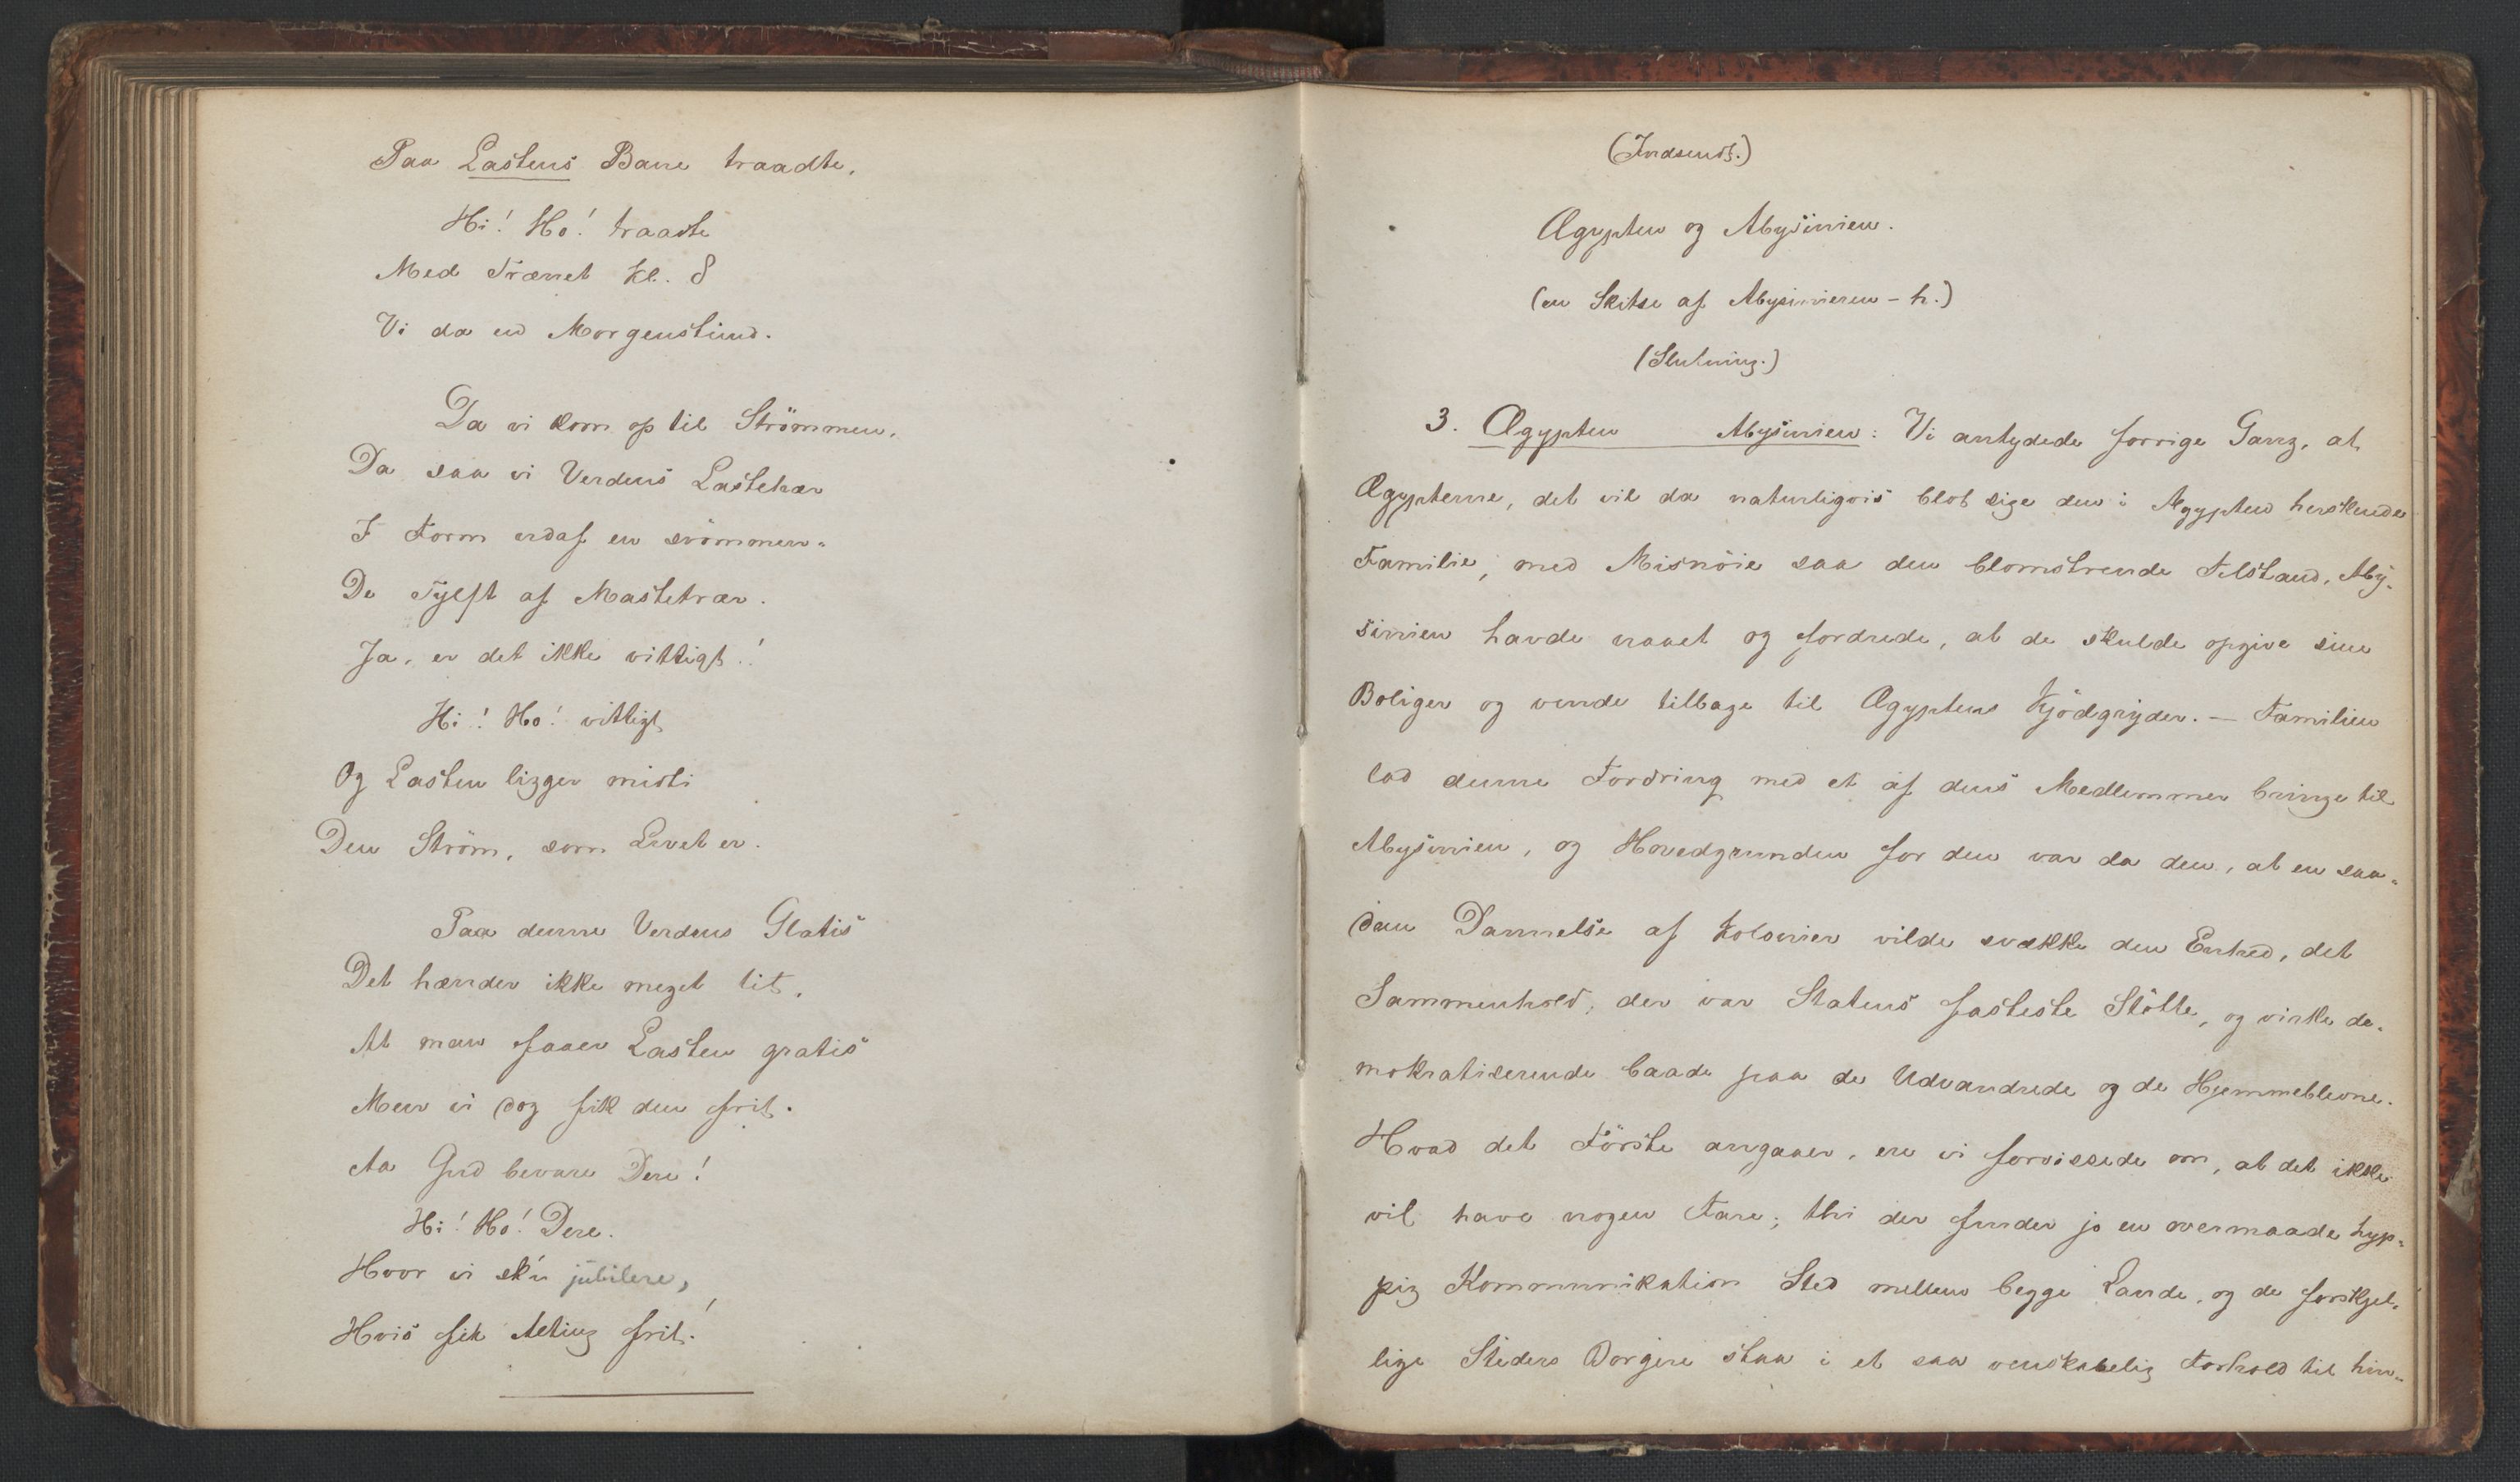 Paa Lastens Bane traadte,
Hi! Ho! traadte
Med Trænet kl. 8
Vi da en Morgenstund.
Da vi kom op til Strömmen,
Da saa vi Verdens Lastehær
I Form udaf en svömmen-
De Tylft af Mastetrær.
Ja, er det ikke vittigt!
Hi! Ho! vittigt
Og Lasten ligger midti
Den Ström, som Livet er.
Paa denne Verdens Glatis
Det hænder ikke meget tit,
At man faaer Lasten gratis
Men vi dog fik den frit.
Aa Gud bevare Dere!
Hi! Ho! Dere.
Hvor vi sku jubilere,
Hvis fik Alting frit!
(Indsendt.)
Ægypten og Abysinien.
(en Skitse af Abysinieren - h.)
(Slutning.)
3. Ægypten Abysinien: Vi antydede forrige Gang, at
Ægypterne, det vil da naturligvis blot sige den i Ægypten herskende
Familie, med Misnöie saa den blomstrende Tilstand, Aby-
sinien havde naaet og fordrede, at de skulde opgive sine
Boliger og vende tilbage til Ægyptens Kjödgryder. — Familien
lod denne Fordring med et af dens Medlemmer bringe til
Abysinien, og Hovedgrunden for den var da den, at en saa-
dan Dannelse af Kolonier vilde svække den Enhed, det
Sammenhold, der var Statens fasteste Stötte, og virke de-
mokratiserende baade paa de Udvandrede og de Hjemmeblevne.
Hvad det Förste angaaer, ere vi forvissede om, at det ikke
vil have nogen Fare; thi der finder jo en overmaade hyp-
pig Kommunikation Sted mellem begge Lande, og de forskjel-
lige Steders Borgere staa i et saa venskabelig Forhold til hin-